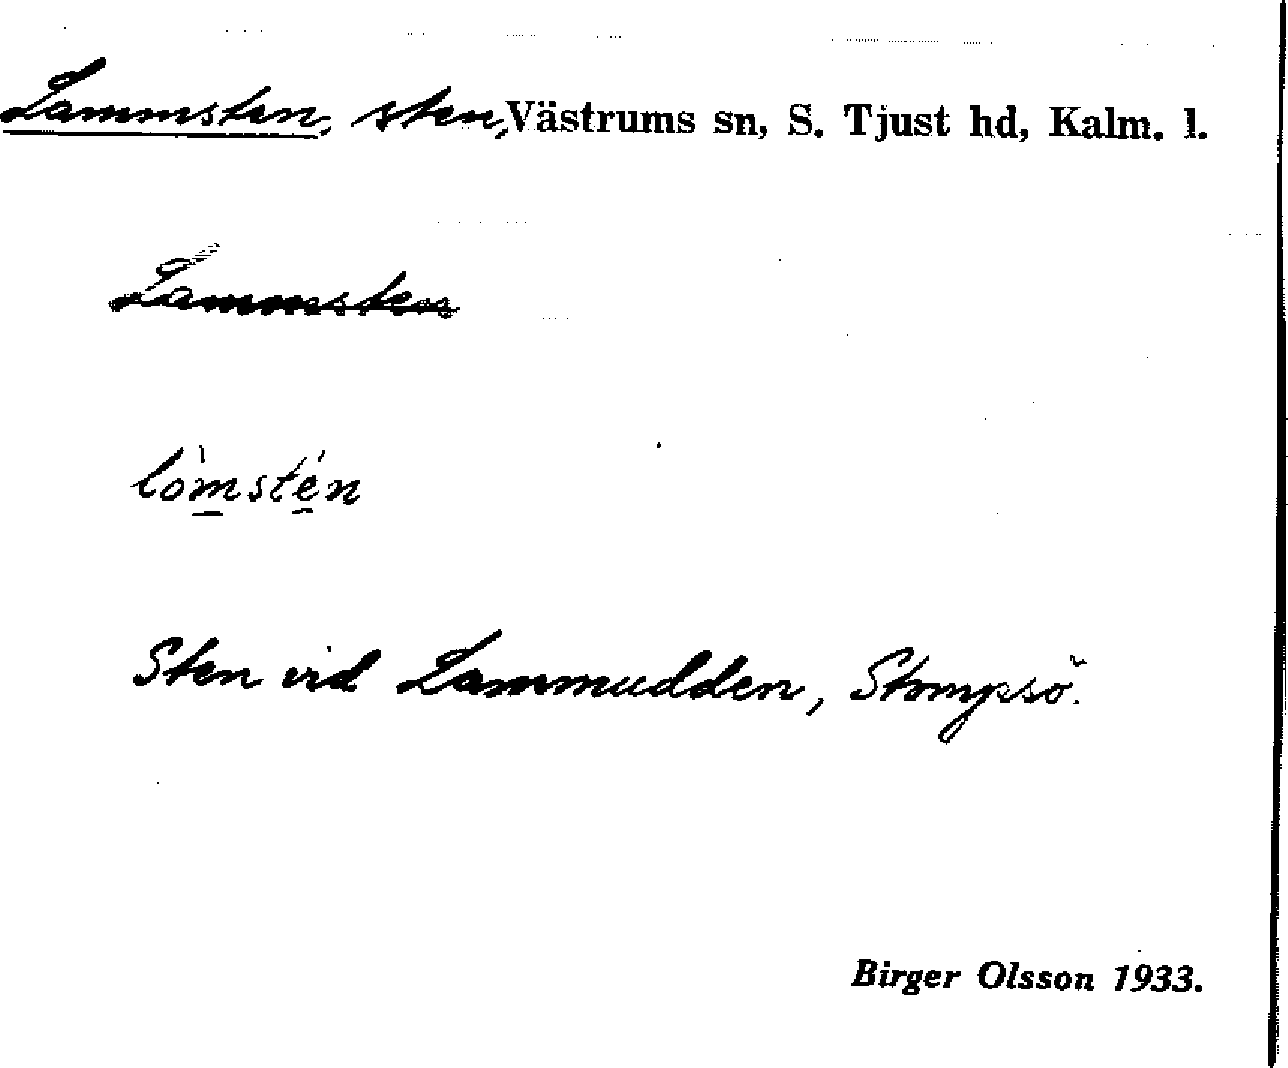 Lammsten, sten, Västrums sn, S. Tjust hd, Kalm. l.
Lammsten
lòmstén
Sten vid Lammudden, Strupsö.
Birger Olsson 1933.